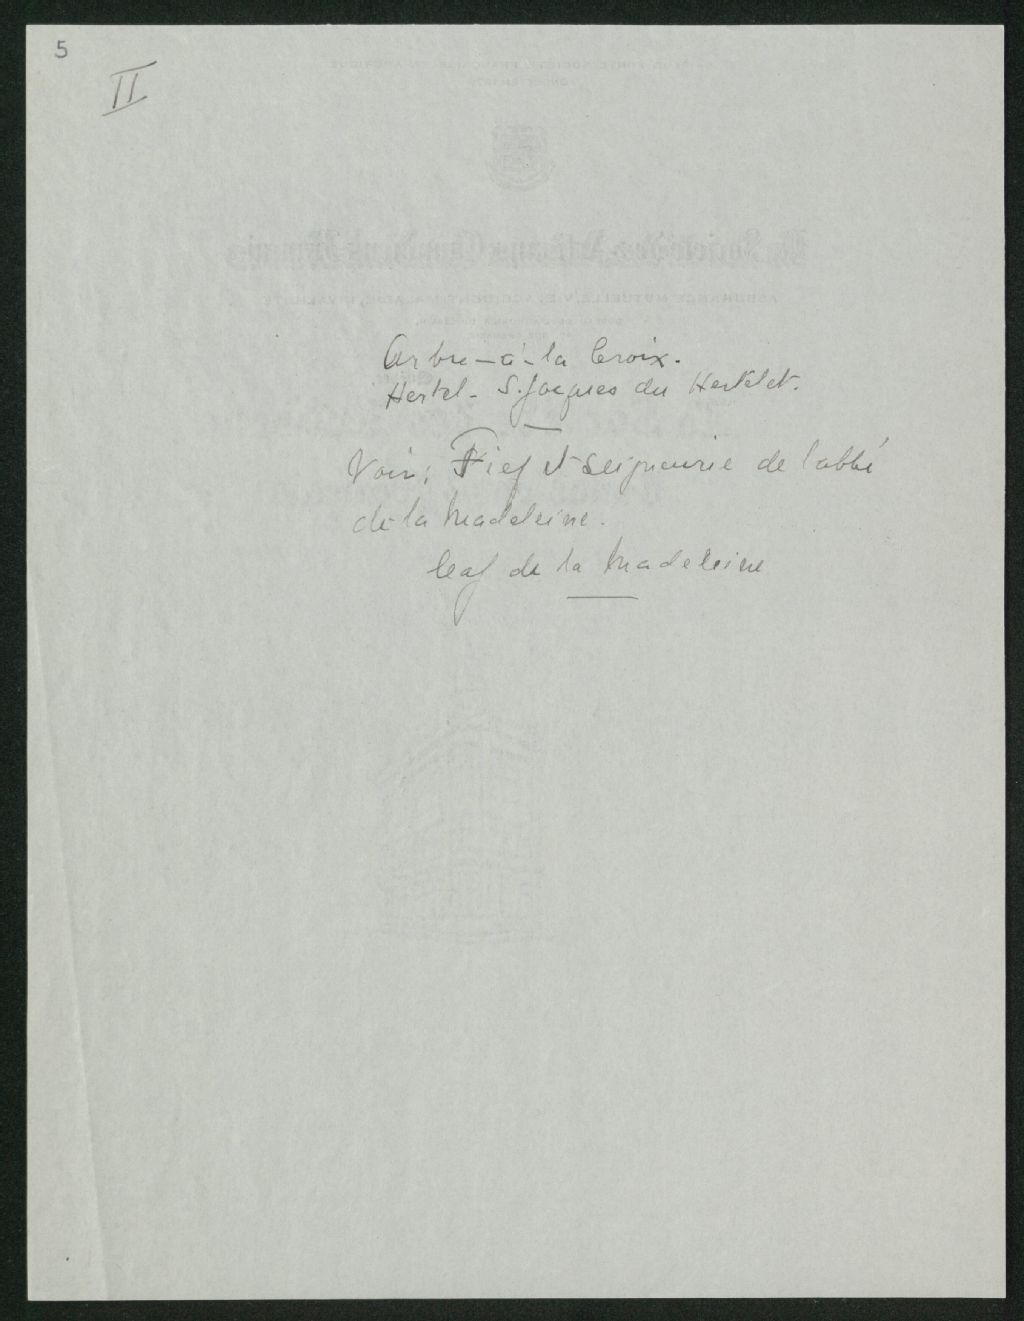 5
II
Arbre-à-la Croix.
Hertel - S. Jacques du Hertelet.
Voir: Fief et seigneurie de l'abbé
de la Madeleine.
Cap de la Madeleine